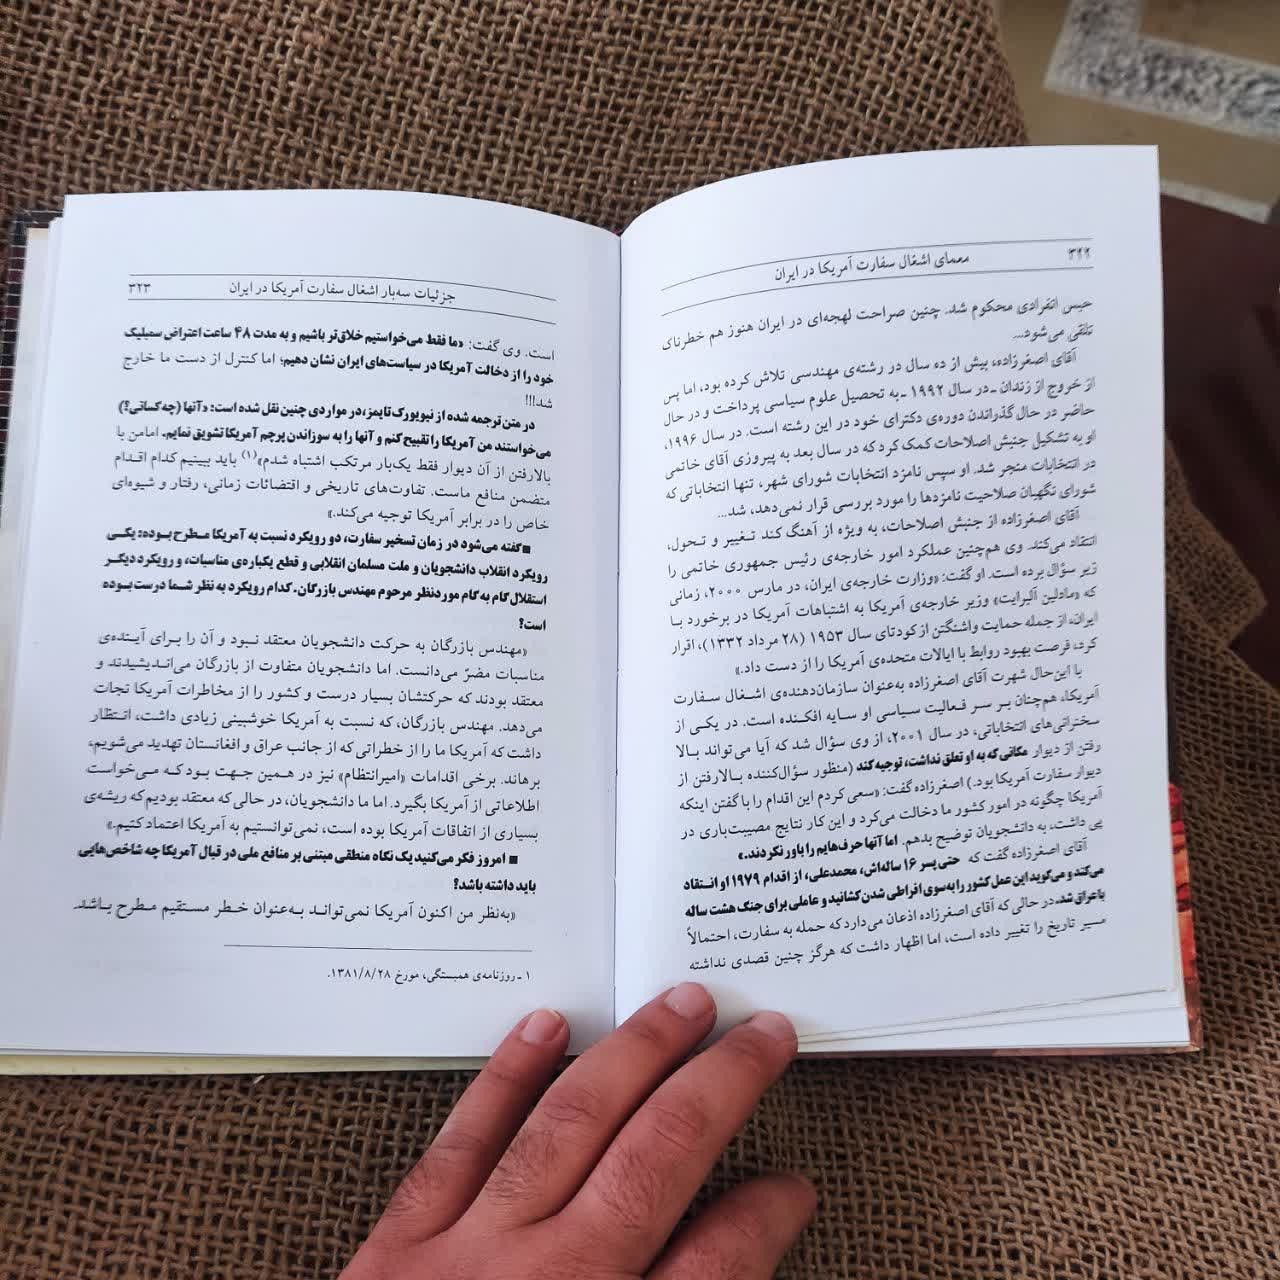 ۳۲۲ معمای اشغال سفارت آمریکا در ایران
حبس انفرادی محکوم شد. چنین صراحت لهجه‌ای در ایران هنوز هم خطرناک
تلقی می‌شود...
آقای اصغرزاده، بیش از ده سال در رشته‌ی مهندسی تلاش کرده بود، اما پس
از خروج از زندان ـ در سال ۱۹۹۲ ـ به تحصیل علوم سیاسی پرداخت و در حال
حاضر در حال گذراندن دوره‌ی دکترای خود در این رشته است. در سال ۱۹۹۶،
او به تشکیل جنبش اصلاحات کمک کرد که در سال بعد به پیروزی آقای خاتمی
در انتخابات منجر شد. او سپس نامزد انتخابات شورای شهر، تنها انتخاباتی که
شورای نگهبان صلاحیت نامزدها را مورد بررسی قرار نمی‌دهد، شد...
آقای اصغرزاده از جنبش اصلاحات، به ویژه از آهنگ کند تغییر و تحول،
انتقاد می‌کند. وی هم‌چنین عملکرد امور خارجه‌ی رئیس جمهوری خاتمی را
زیر سؤال برده است. او گفت: «وزارت خارجه‌ی ایران، در مارس ۲۰۰۰، زمانی
که «مادلین آلبرایت» وزیر خارجه‌ی آمریکا به اشتباهات آمریکا در برخورد با
ایران، از جمله حمایت واشنگتن از کودتای سال ۱۹۵۳ (۲۸ مرداد ۱۳۳۲)، اقرار
کرد، فرصت بهبود روابط با ایالات متحده‌ی آمریکا را از دست داد.»
با این‌حال شهرت آقای اصغرزاده به‌عنوان سازمان‌دهنده‌ی اشغال سفارت
آمریکا، هم‌چنان بر سر فعالیت سیاسی او سایه افکنده است. در یکی از
سخنرانی‌های انتخاباتی، در سال ۲۰۰۱، از وی سؤال شد که آیا می‌تواند بالا
رفتن از دیوار مکانی که به او تعلق نداشت، توجیه کند (منظور سؤال‌کننده بالارفتن از
دیوار سفارت آمریکا بود.) اصغرزاده گفت: «سعی کردم این اقدام را با گفتن اینکه
آمریکا چگونه در امور کشور ما دخالت می‌کرد و این کار نتایج مصیبت‌باری در
پی داشت، به دانشجویان توضیح بدهم. اما آنها حرف‌هایم را باور نکردند.»
آقای اصغرزاده گفت که حتی پسر ۱۶ ساله‌اش، محمدعلی، از اقدام ۱۹۷۹ او انتقاد
می‌کند و می‌گوید این عمل کشور را به‌سوی افراطی شدن کشانید و عاملی برای جنگ هشت ساله
با عراق شد. در حالی که آقای اصغرزاده اذعان می‌دارد که حمله به سفارت، احتمالاً
مسیر تاریخ را تغییر داده است، اما اظهار داشت که هرگز چنین قصدی نداشته
جزئیات سه‌بار اشغال سفارت آمریکا در ایران ۳۲۳
است. وی گفت: «ما فقط می‌خواستیم خلاق‌تر باشیم و به مدت ۴۸ ساعت اعتراض سمبلیک
خود را از دخالت آمریکا در سیاست‌های ایران نشان دهیم؛ اما کنترل از دست ما خارج
شد!!!
در متن ترجمه شده از نیویورک تایمز، در مواردی چنین نقل شده است: «آنها (چه کسانی؟)
می‌خواستند من آمریکا را تقبیح کنم و آنها را به سوزاندن پرچم آمریکا تشویق نمایم. امامن با
بالارفتن از آن دیوار فقط یک‌بار مرتکب اشتباه شدم»(۱) باید ببینیم کدام اقدام
متضمن منافع ماست. تفاوت‌های تاریخی و اقتضائات زمانی، رفتار و شیوه‌ای
خاص را در برابر آمریکا توجیه می‌کند.»
■ گفته می‌شود در زمان تسخیر سفارت، دو رویکرد نسبت به آمریکا مطرح بوده: یکی
رویکرد انقلاب دانشجویان و ملت مسلمان انقلابی و قطع یکباره‌ی مناسبات، و رویکرد دیگر
استقلال گام به گام موردنظر مرحوم مهندس بازرگان. کدام رویکرد به نظر شما درست بوده
است؟
«مهندس بازرگان به حرکت دانشجویان معتقد نبود و آن را برای آینده‌ی
مناسبات مضرّ می‌دانست. اما دانشجویان متفاوت از بازرگان می‌اندیشیدند و
معتقد بودند که حرکتشان بسیار درست و کشور را از مخاطرات آمریکا نجات
می‌دهد. مهندس بازرگان، که نسبت به آمریکا خوشبینی زیادی داشت، انتظار
داشت که آمریکا ما را از خطراتی که از جانب عراق و افغانستان تهدید می‌شویم،
برهاند. برخی اقدامات «امیرانتظام» نیز در همین جهت بود که می‌خواست
اطلاعاتی از آمریکا بگیرد. اما ما دانشجویان، در حالی که معتقد بودیم که ریشه‌ی
بسیاری از اتفاقات آمریکا بوده است، نمی‌توانستیم به آمریکا اعتماد کنیم.»
■ امروز فکر می‌کنید یک نگاه منطقی مبتنی بر منافع ملی در قبال آمریکا چه شاخص‌هایی
باید داشته باشد؟
«به‌نظر من اکنون آمریکا نمی‌تواند به‌عنوان خطر مستقیم مطرح باشد.
۱ ـ روزنامه‌ی همبستگی، مورخ ۱۳۸۱/۸/۲۸.